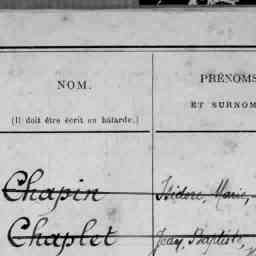 NOM.
PRÉNOMS
(Il doit être écrit en bâtarde.)
ET SURNOM
Chapin Isidore, Marie,
Chaplet Jean, Baptiste,